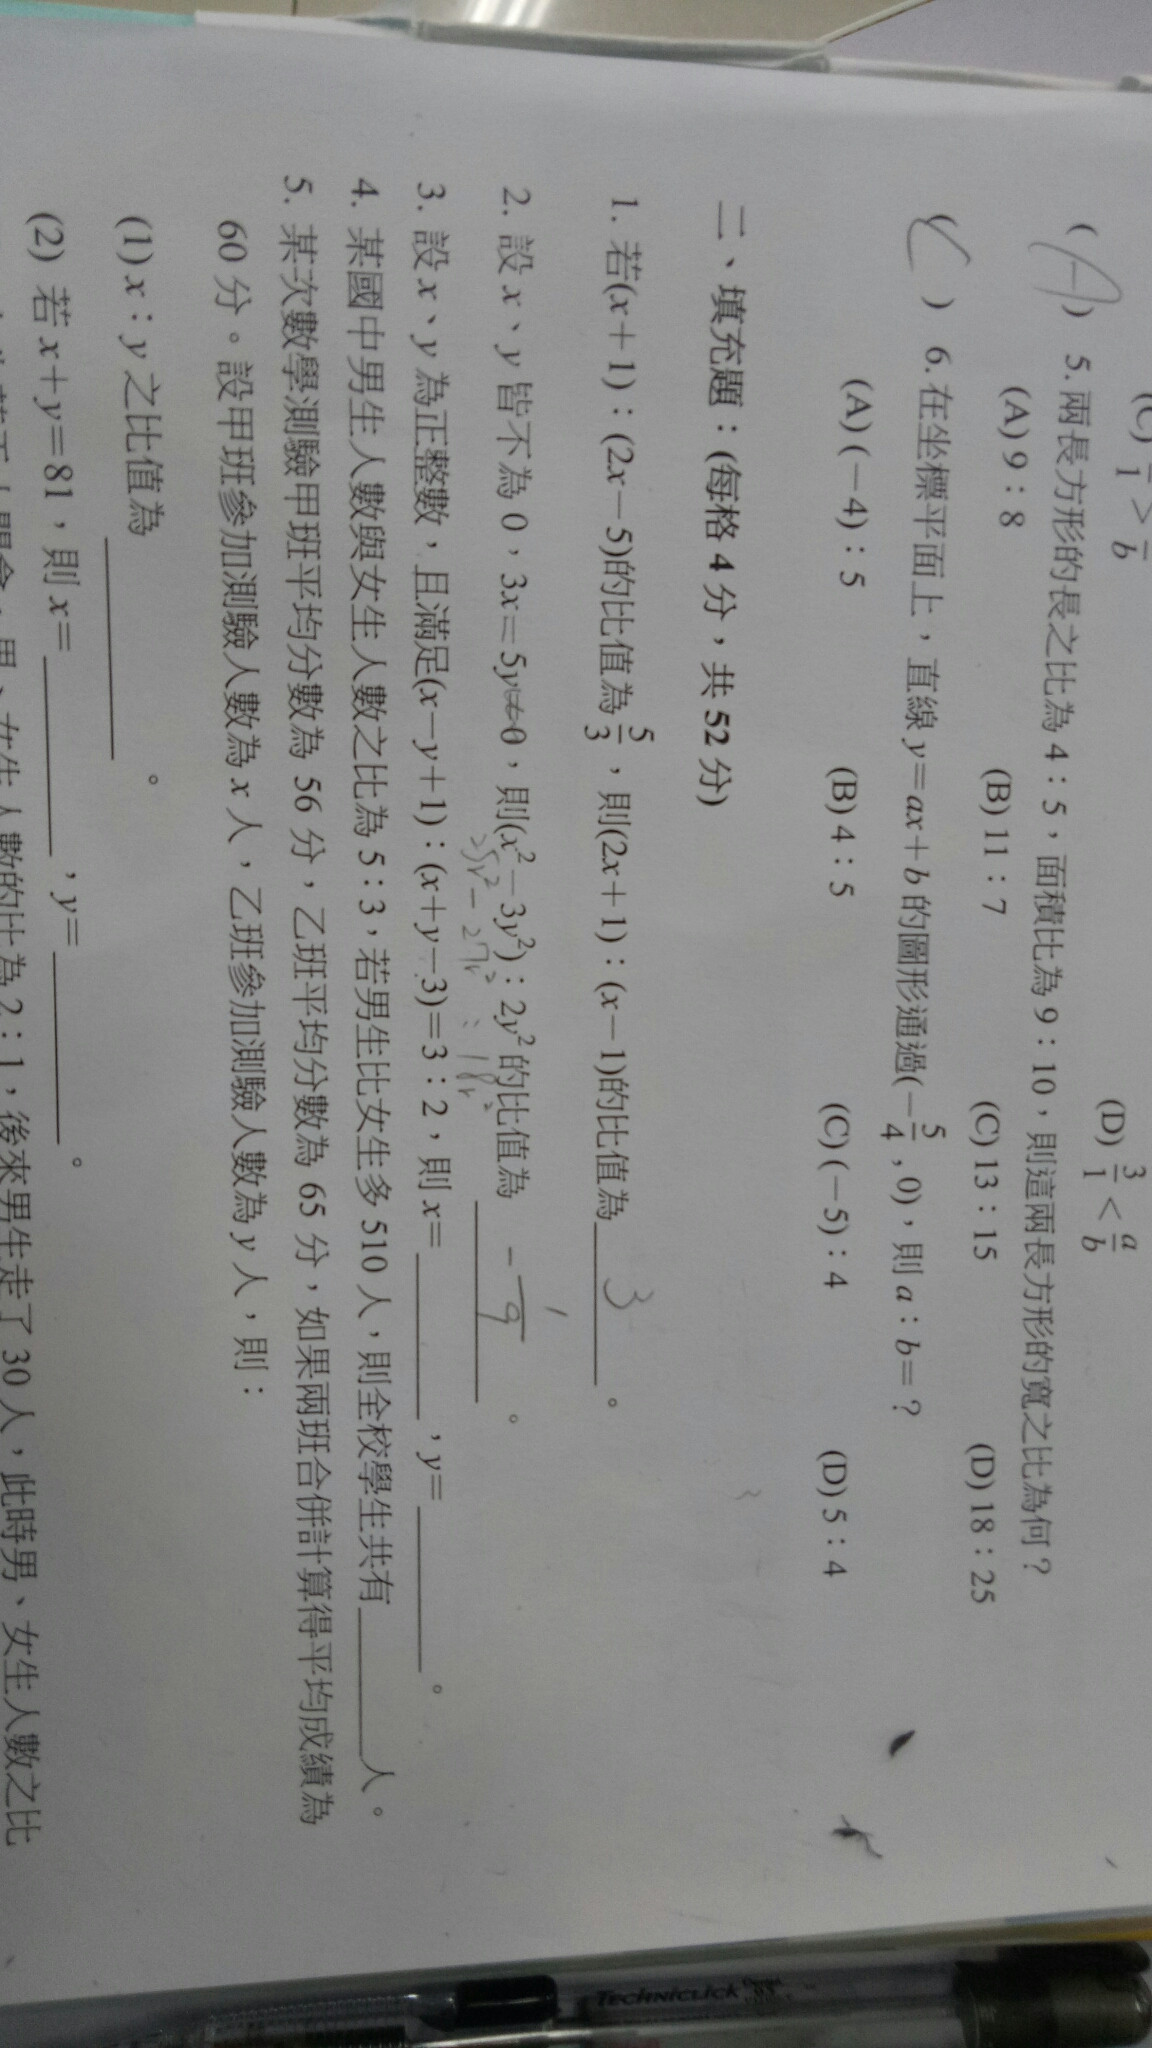 (C) 1 > b
(D) 3/1 < a/b
(A) 5. 兩長方形的長之比為 4：5，面積比為 9：10，則這兩長方形的寬之比為何？
(A) 9：8 (B) 11：7 (C) 13：15 (D) 18：25
( ) 6. 在坐標平面上，直線 y=ax+b 的圖形通過(-5/4, 0)，則 a：b=？
(A) (-4)：5 (B) 4：5 (C) (-5)：4 (D) 5：4
二、填充題：(每格 4 分，共 52 分)
1. 若(x+1)：(2x-5)的比值為 5/3，則(2x+1)：(x-1)的比值為 3 。
2. 設 x、y 皆不為 0，3x=5y≠0，則(x²-3y²)：2y² 的比值為 -1/9 。
25y²-27y²：18y²
3. 設 x、y 為正整數，且滿足(x-y+1)：(x+y-3)=3：2，則 x=＿＿＿，y=＿＿＿。
4. 某國中男生人數與女生人數之比為 5：3，若男生比女生多 510 人，則全校學生共有＿＿＿人。
5. 某次數學測驗甲班平均分數為 56 分，乙班平均分數為 65 分，如果兩班合併計算得平均成績為
60 分。設甲班參加測驗人數為 x 人，乙班參加測驗人數為 y 人，則：
(1) x：y 之比值為＿＿＿。
(2) 若 x+y=81，則 x=＿＿＿，y=＿＿＿。
男、女生人數的比為 2：1，後來男生走了 30 人，此時男、女生人數之比
TECHNICLICK